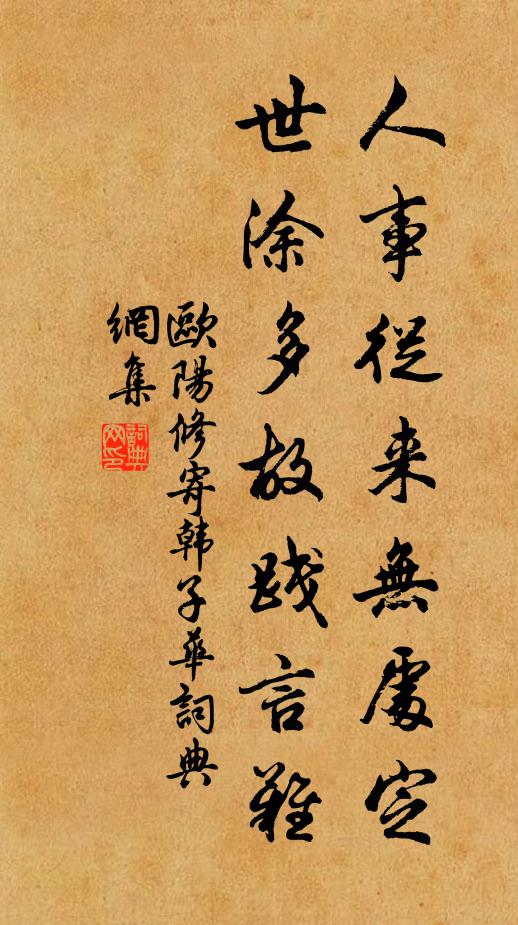 人事從来無處定
世涂多故踐言難
歐陽修寄韩子華詞典
網集
詞典網印